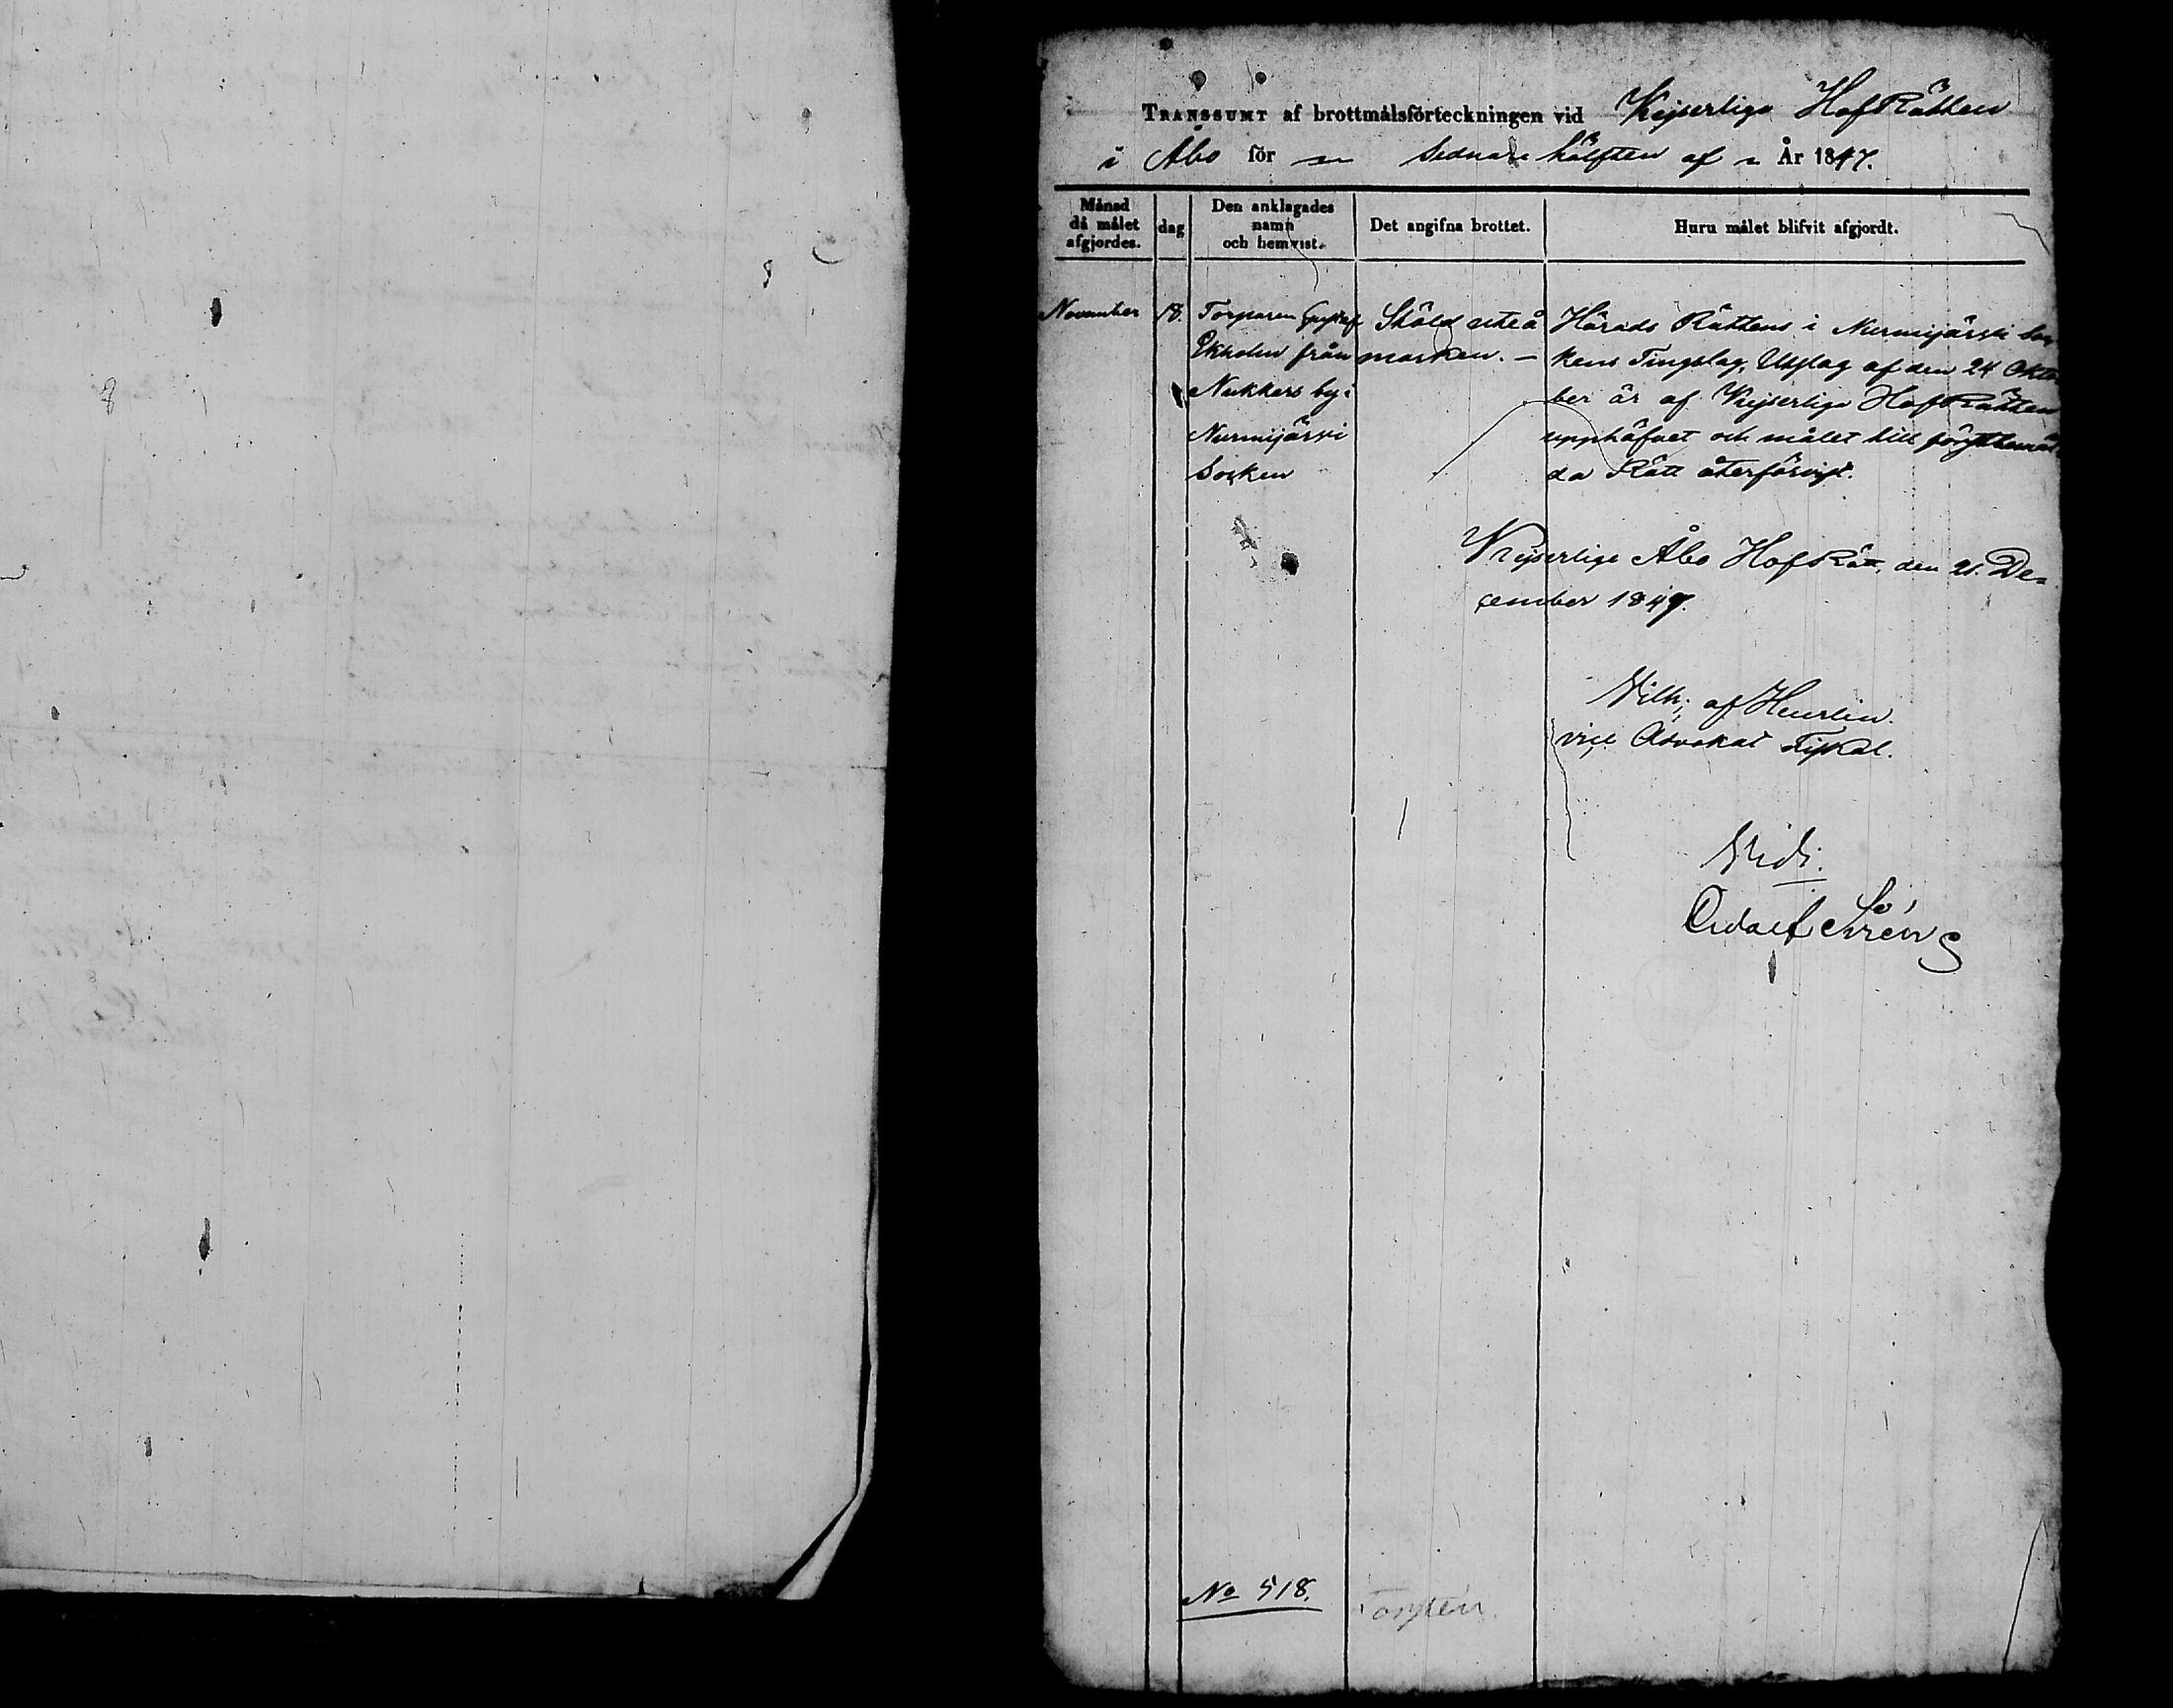 TRANSSUMT af brottmålsförteckningen vid Kejserliga HofRätten
i Åbo för sednare hälften af År 1847.
Månad
då målet
afgjordes.
dag
Den anklagades
namn
och hemvist.
Det angifna brottet.
Huru målet blifvit afgjordt.
November
18.
Torparen Gustaf
Ekholm från
Nukkars by i
Nurmijärvi
Socken
Stöld ute å
marken. —
Härads Rättens i Nurmijärvi Soc-
kens Tingslag, Utslag af den 24 Okto-
ber är af Kejserliga HofRätten
upphäfvet och målet till förstbemäl-
da Rätt återförvist.
Kejserliga Åbo HofsRätt, den 21. De=
cember 1847.
Wilh: af Heurlin.
vice Advokat Fiskal.
Vidi.
No 518.